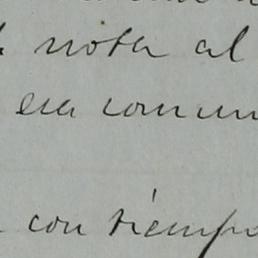 nota al
era comun
con tiempo